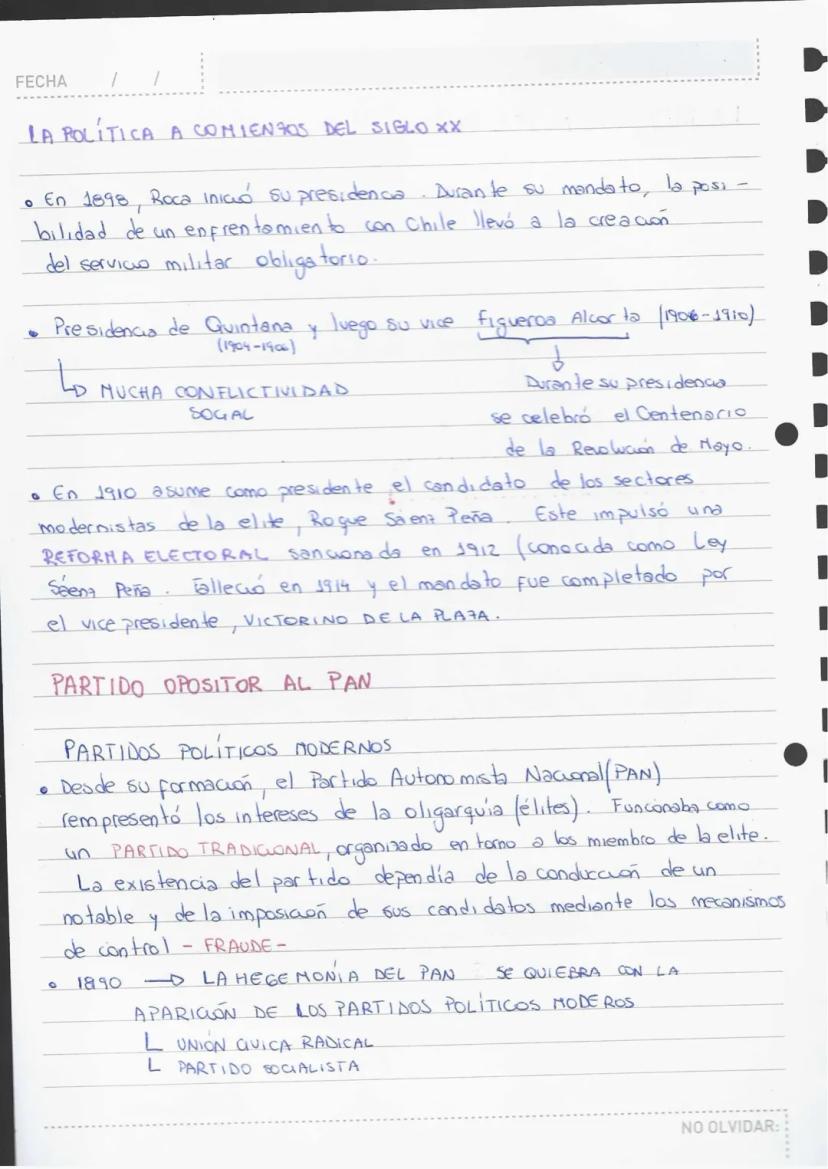 FECHA / /
LA POLÍTICA A COMIENZOS DEL SIGLO XX
• En 1898, Roca inició su presidencia. Durante su mandato, la posi-
bilidad de un enfrentamiento con Chile llevó a la creación
del servicio militar obligatorio.
• Presidencia de Quintana y luego su vice Figueroa Alcorta (1906-1910)
(1904-1906)
MUCHA CONFLICTIVIDAD
SOCIAL
Durante su presidencia
se celebró el Centenario
de la Revolución de Mayo.
• En 1910 asume como presidente el candidato de los sectores
modernistas de la elite, Roque Sáenz Peña. Este impulsó una
REFORMA ELECTORAL sancionada en 1912 (conocida como Ley
Sáenz Peña. Falleció en 1914 y el mandato fue completado por
el vicepresidente, VICTORINO DE LA PLAZA.
PARTIDO OPOSITOR AL PAN
PARTIDOS POLÍTICOS MODERNOS
• Desde su formación, el Partido Autonomista Nacional (PAN)
rempresentó los intereses de la oligarquía (élites). Funcionaba como
un PARTIDO TRADICIONAL, organizado en torno a los miembro de la elite.
La existencia del partido dependía de la conducción de un
notable y de la imposición de sus candidatos mediante los mecanismos
de control - FRAUDE -
• 1890 → LA HEGEMONÍA DEL PAN SE QUIEBRA CON LA
APARICIÓN DE LOS PARTIDOS POLÍTICOS MODEROS
UNIÓN CIVICA RADICAL
PARTIDO SOCIALISTA
NO OLVIDAR: